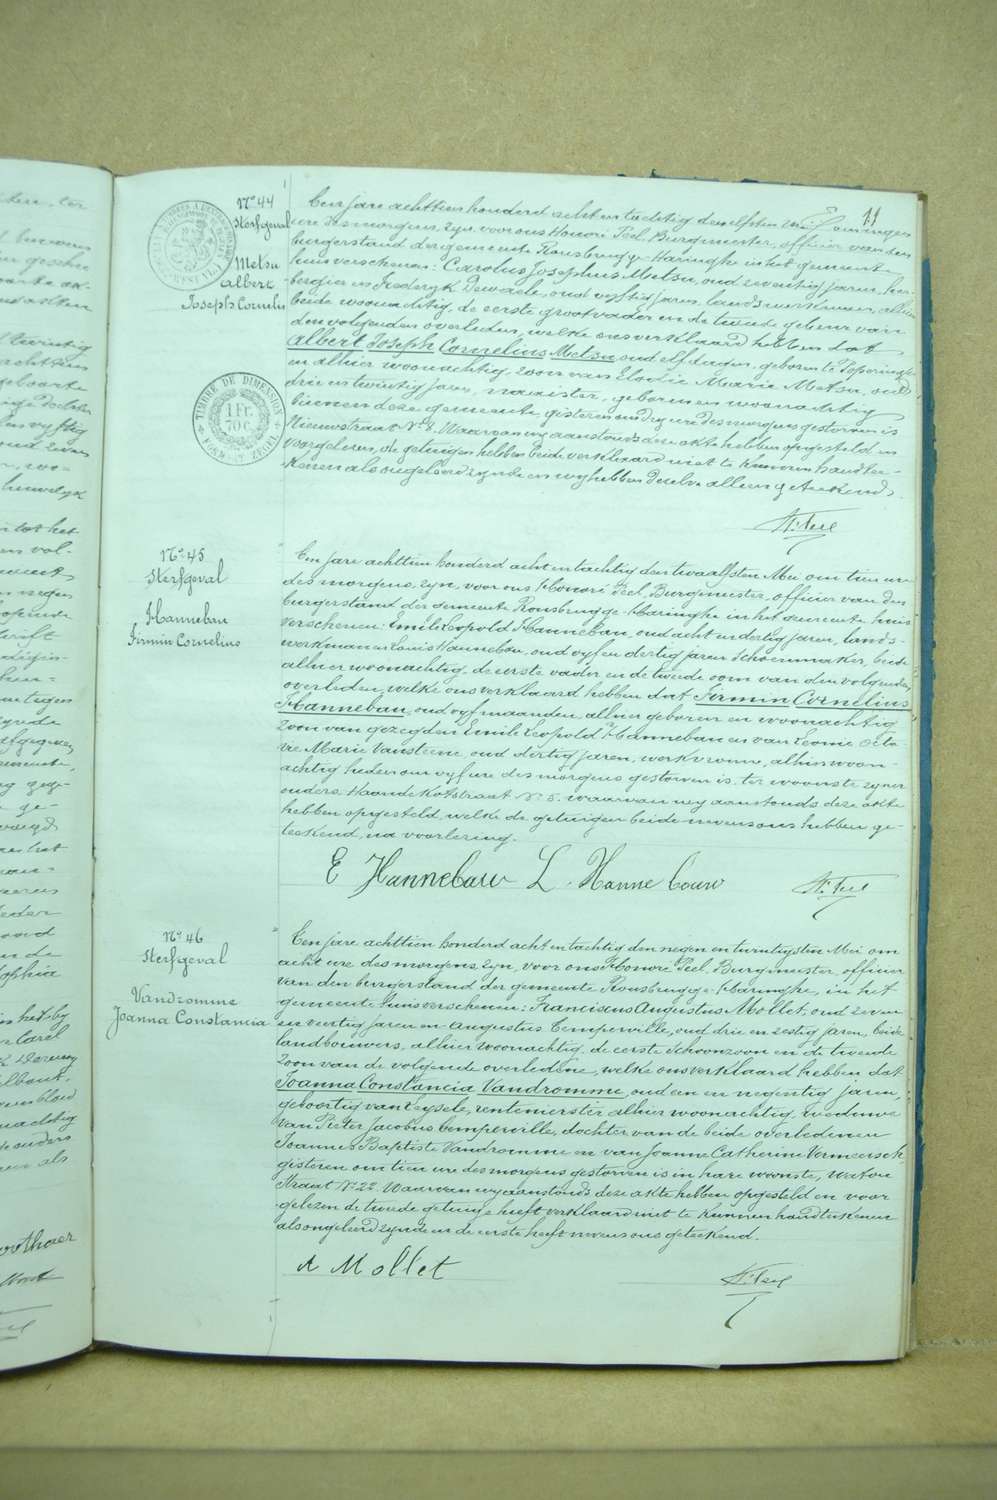 11
No 44
Sterfgeval
Metsu
Albert
Joseph Cornelis
TIMBRE DE DIMENSION
1 Fr.
70 C.
FORM. ZEGEL
Een jare achttien honderd acht en tachtig den elfsten
ure des morgens, zyn voor ons Honoré Peel, Burgmeester, officier van den
burgerstand der gemeente Rousbrugge-Haringhe in het gemeente
huis verschenen: Carolus Josephus Metsu, oud zeventig jaren, her-
bergier en Frederyk Dewaele, oud vyftig jaren, landswerkman, allen
beide woonachtig, de eerste grootvader en de tweede gebuur van
den volgenden overleden, welke ons verklaard hebben dat
Albert Joseph Cornelius Metsu, oud elf dagen, geboren te Poperinghe
en alhier woonachtig, zoon van Elodie Marie Metsu, oud
drie en twintig jaren, naaister, geboren en woonachtig
binnen deze gemeente, gisteren om dry ure des morgens gestorven is
Nieuwstraat No 8. Waarvan wy aanstonds deze akte hebben opgesteld en
voorgelezen, de getuigen hebben beide verklaard niet te kunnen handtee-
kenen als ongeleerd zynde en wy hebben dezelve alleen geteekend.
Hré Peel
No 45
Sterfgeval
Hannebau
Firmin Cornelius
Een jare achttien honderd acht en tachtig den twaalfsten Mei om tien ure
des morgens, zyn, voor ons Honoré Peel, Burgmeester, officier van den
burgerstand der Gemeente Rousbrugge-Haringhe in het gemeente huis
verschenen: Emile Leopold Hannebau, oud acht en dertig jaren, lands-
werkman en Louis Hannebau, oud vyf en dertig jaren Schoenmaker, beide
alhier woonachtig, de eerste vader en de tweede oom van den volgenden
overleden, welke ons verklaard hebben dat Firmin Cornelius
Hannebau, oud vyf maanden, alhier geboren en woonachtig
zoon van gezegden Emile Leopold Hannebau en van Leonie Octa-
vie Marie Vansteene, oud dertig jaren, werkvrouw, alhier woon-
achtig heden om vyf ure des morgens gestorven is, ter woonste zyner
ouders Haandekotstraat No 5. waarvan wy aanstonds deze akte
hebben opgesteld, welke de getuigen beide nevens ons hebben ge-
teekend, na voorlezing.
E Hannebauw L. Hanne bouw Hré Peel
No 46
Sterfgeval
Vandromme
Joanna Constancia
Een jare achttien honderd acht en tachtig den negen en twintigsten Mei om
acht ure des morgens, zyn, voor ons Honoré Peel, Burgmeester, officier
van den burgerstand der gemeente Rousbrugge-Haringhe, in het
gemeente huis verschenen: Franciscus Augustus Mollet, oud zeven
en veertig jaren en Augustus Cemperville, oud drie en zestig jaren, beide
landbouwers, alhier woonachtig, de eerste Schoonzoon en de tweede
zoon van de volgende overledene, welke ons verklaard hebben dat
Joanna Constancia Vandromme, oud een en negentig jaren,
geboortig van Leysele, rentenierster alhier woonachtig, weduwe
van Pieter Jacobus Cemperville, dochter van de beide overledenen
Joannes Baptiste Vandromme en van Joanne Catherine Vermeersch,
gisteren om tien ure des morgens gestorven is in hare woonste, Watou
straat No 22. Waarvan wy aanstonds deze akte hebben opgesteld en voor
gelezen de tweede getuige heeft verklaard niet te kunnen handteekenen
als ongeleerd zynde en de eerste heeft nevens ons geteekend.
A Mollet Hré Peel